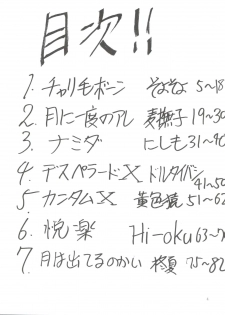 目次!!
1. チャリ毛ボーン そよそよ 5~18
2. 月に一度のアレ 麦撫子 19~30
3. ナミダ にしも 31~40
4. デスペラードX ドルタイバン 41~50
5. カンタムX 黄色猿 51~62
6. 悦楽 Hi-oku 63~
7. 月は出てるのかい 柊夏 75~82